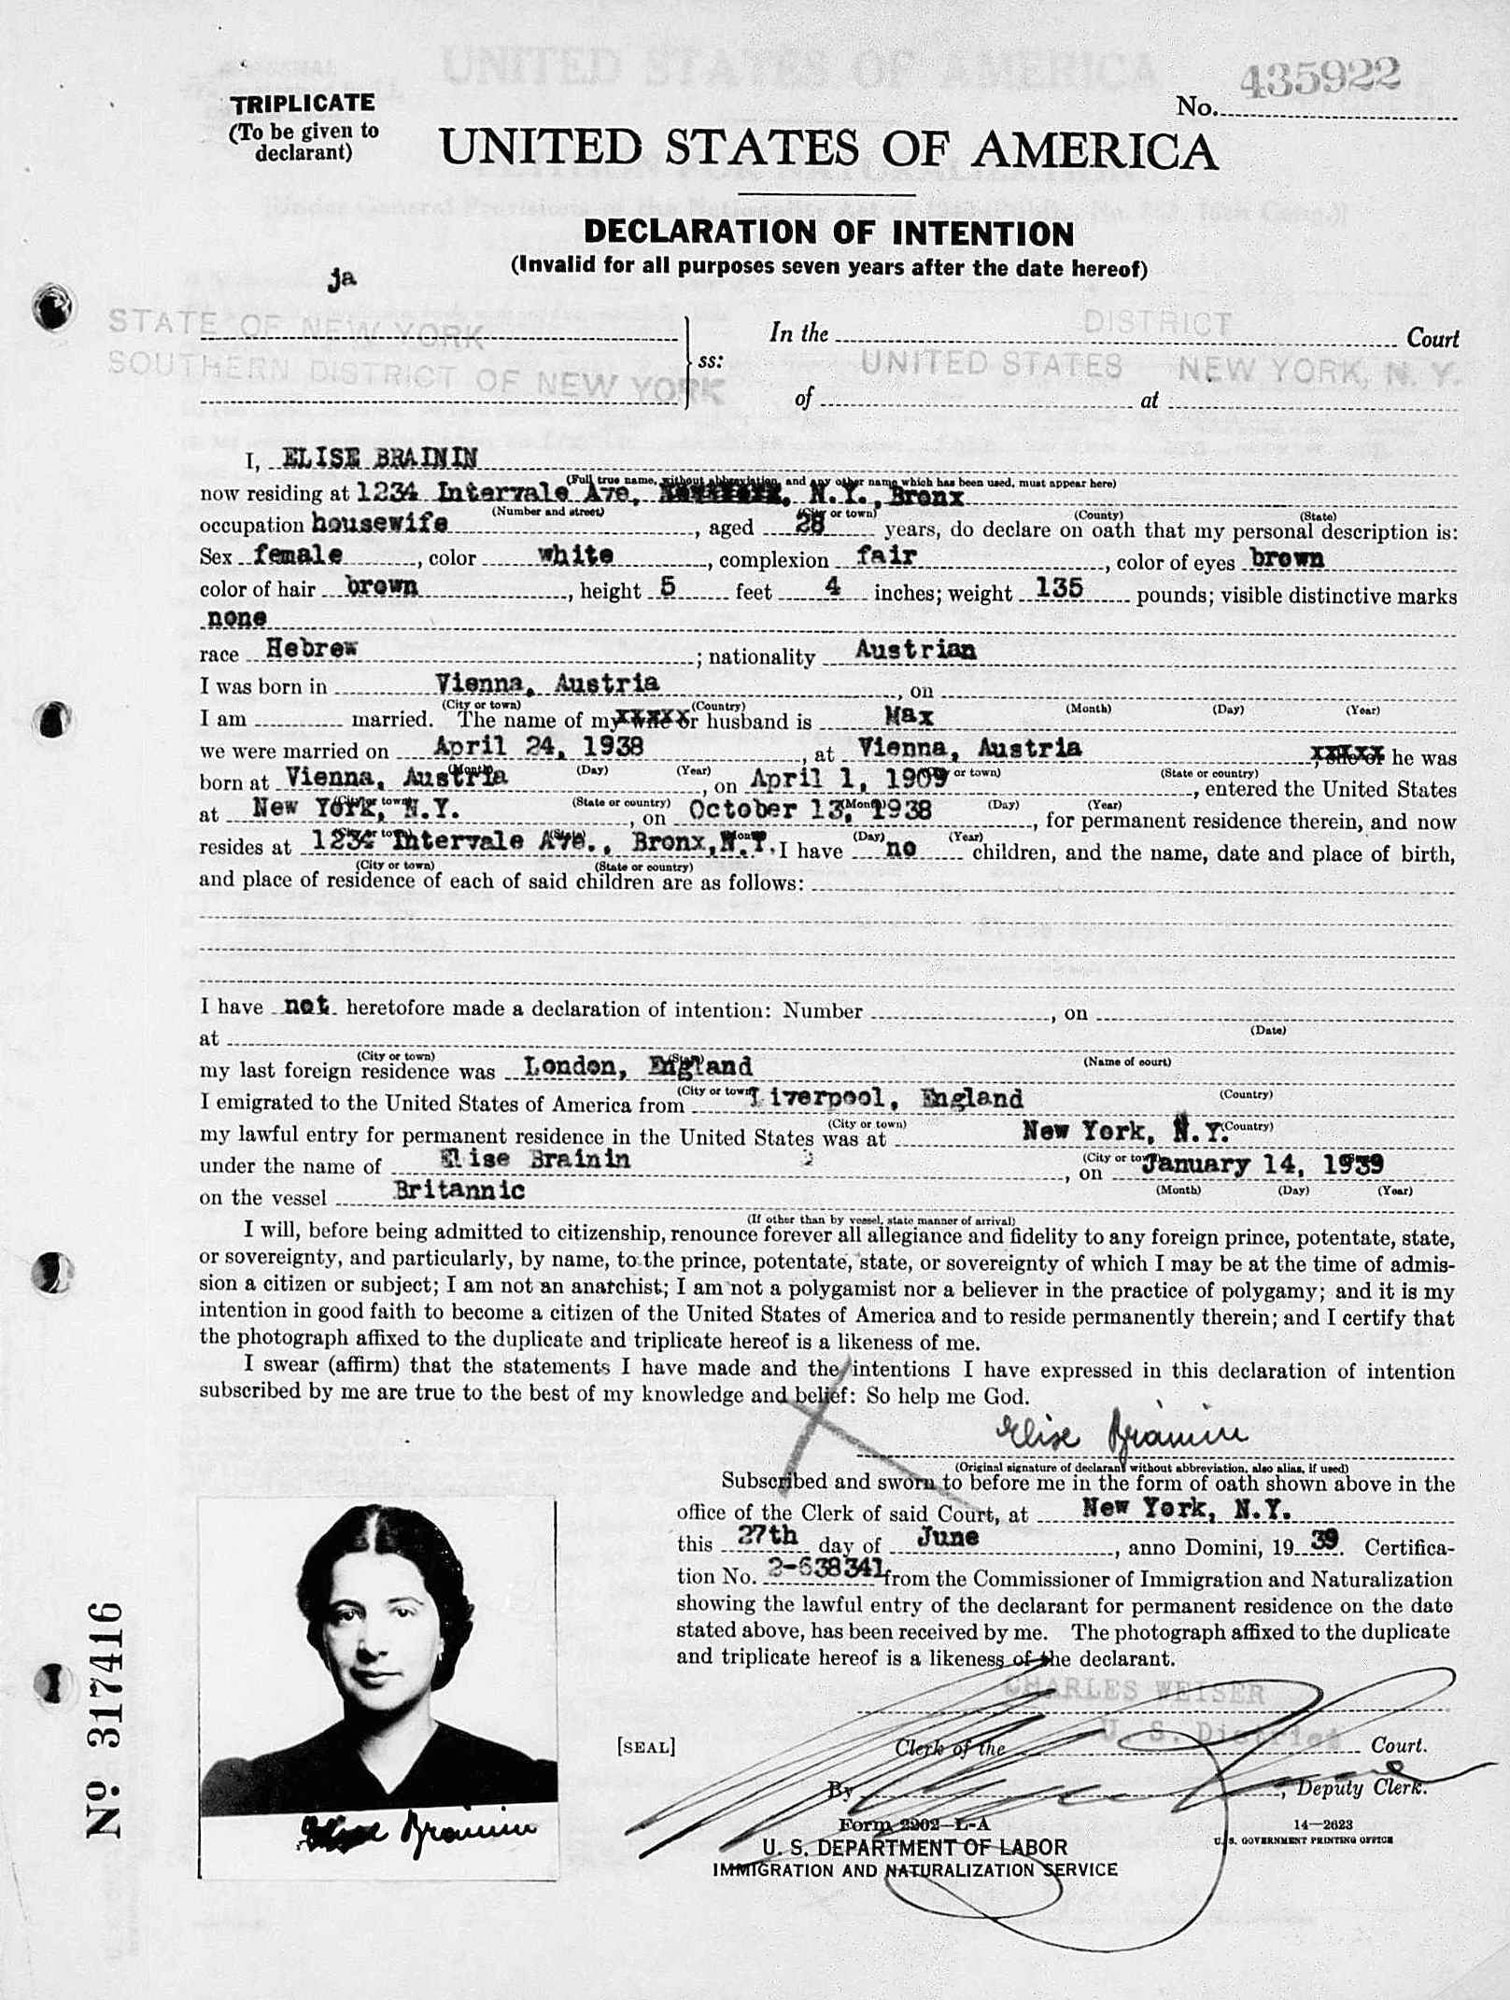 TRIPLICATE
(To be given to
declarant)
No. 435922
UNITED STATES OF AMERICA
DECLARATION OF INTENTION
(Invalid for all purposes seven years after the date hereof)
ja
STATE OF NEW YORK
SOUTHERN DISTRICT OF NEW YORK
ss:
In the DISTRICT Court
of UNITED STATES at NEW YORK, N. Y.
I, ELISE BRAININ
(Full true name, without abbreviation, and any other name which has been used, must appear here)
now residing at 1234 Intervale Ave, N.Y., Bronx
(Number and street) (City or town) (County) (State)
occupation housewife, aged 28 years, do declare on oath that my personal description is:
Sex female, color white, complexion fair, color of eyes brown
color of hair brown, height 5 feet 4 inches; weight 135 pounds; visible distinctive marks
none
race Hebrew; nationality Austrian
I was born in Vienna, Austria, on
(City or town) (Country) (Month) (Day) (Year)
I am married. The name of my wife or husband is Max
we were married on April 24, 1938, at Vienna, Austria; she or he was
(Month) (Day) (Year) (City or town) (State or country)
born at Vienna, Austria, on April 1, 1909, entered the United States
(City or town) (State or country) (Month) (Day) (Year)
at New York, N.Y., on October 13, 1938, for permanent residence therein, and now
(City or town) (State) (Month) (Day) (Year)
resides at 1234 Intervale Ave., Bronx, N.Y. I have no children, and the name, date and place of birth,
(City or town) (State or country)
and place of residence of each of said children are as follows:
I have not heretofore made a declaration of intention: Number, on
(Date)
at
(City or town) (State) (Name of court)
my last foreign residence was London, England
(City or town) (Country)
I emigrated to the United States of America from Liverpool, England
(City or town) (Country)
my lawful entry for permanent residence in the United States was at New York, N.Y.
(City or town)
under the name of Elise Brainin, on January 14, 1939
(Month) (Day) (Year)
on the vessel Britannic
(If other than by vessel, state manner of arrival)
I will, before being admitted to citizenship, renounce forever all allegiance and fidelity to any foreign prince, potentate, state,
or sovereignty, and particularly, by name, to the prince, potentate, state, or sovereignty of which I may be at the time of admis-
sion a citizen or subject; I am not an anarchist; I am not a polygamist nor a believer in the practice of polygamy; and it is my
intention in good faith to become a citizen of the United States of America and to reside permanently therein; and I certify that
the photograph affixed to the duplicate and triplicate hereof is a likeness of me.
I swear (affirm) that the statements I have made and the intentions I have expressed in this declaration of intention
subscribed by me are true to the best of my knowledge and belief: So help me God.
Elise Brainin
(Original signature of declarant without abbreviation, also alias, if used)
Subscribed and sworn to before me in the form of oath shown above in the
office of the Clerk of said Court, at New York, N.Y.
this 27th day of June, anno Domini, 19 39. Certifica-
tion No. 2-638341 from the Commissioner of Immigration and Naturalization
showing the lawful entry of the declarant for permanent residence on the date
stated above, has been received by me. The photograph affixed to the duplicate
and triplicate hereof is a likeness of the declarant.
CHARLES WEISER
U. S. District
[SEAL] Clerk of the Court.
By, Deputy Clerk.
Form 2202-L-A
U. S. DEPARTMENT OF LABOR
IMMIGRATION AND NATURALIZATION SERVICE
14—2623
U. S. GOVERNMENT PRINTING OFFICE
Elise Brainin
No 317416